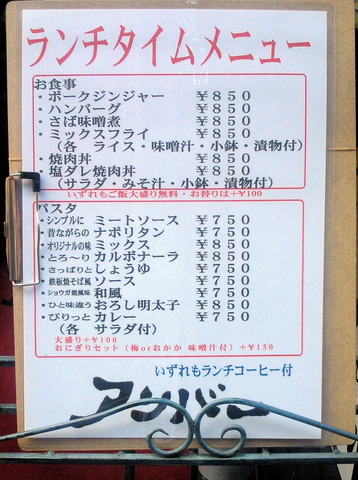 ランチタイムメニュー
お食事
・ポークジンジャー ￥８５０
・ハンバーグ ￥８５０
・さば味噌煮 ￥８５０
・ミックスフライ ￥８５０
（各 ライス・味噌汁・小鉢・漬物付）
・焼肉丼 ￥８５０
・塩ダレ焼肉丼 ￥８５０
（サラダ・みそ汁・小鉢・漬物付）
いずれもご飯大盛り無料・お替りは＋¥100
パスタ
・シンプルに ミートソース ￥７５０
・昔ながらの ナポリタン ￥７５０
・オリジナルの味 ミックス ￥８５０
・とろ～り カルボナーラ ￥８５０
・さっぱりと しょうゆ ￥７５０
・鉄板焼そば風 ソース ￥７５０
・ショウガ焼風味 和風 ￥７５０
・ひと味違う おろし明太子 ￥８５０
・ぴりっと カレー ￥７５０
（各 サラダ付）
大盛り＋¥100
おにぎりセット（梅orおかか 味噌汁付）＋¥150
いずれもランチコーヒー付